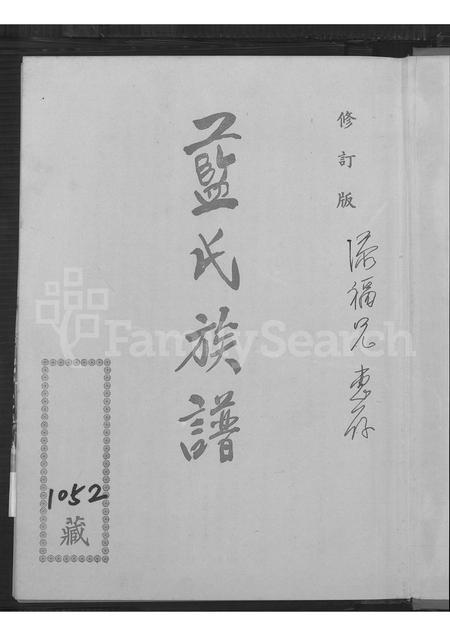 修訂版
福兄 惠存
藍氏族譜
1052
藏
FamilySearch